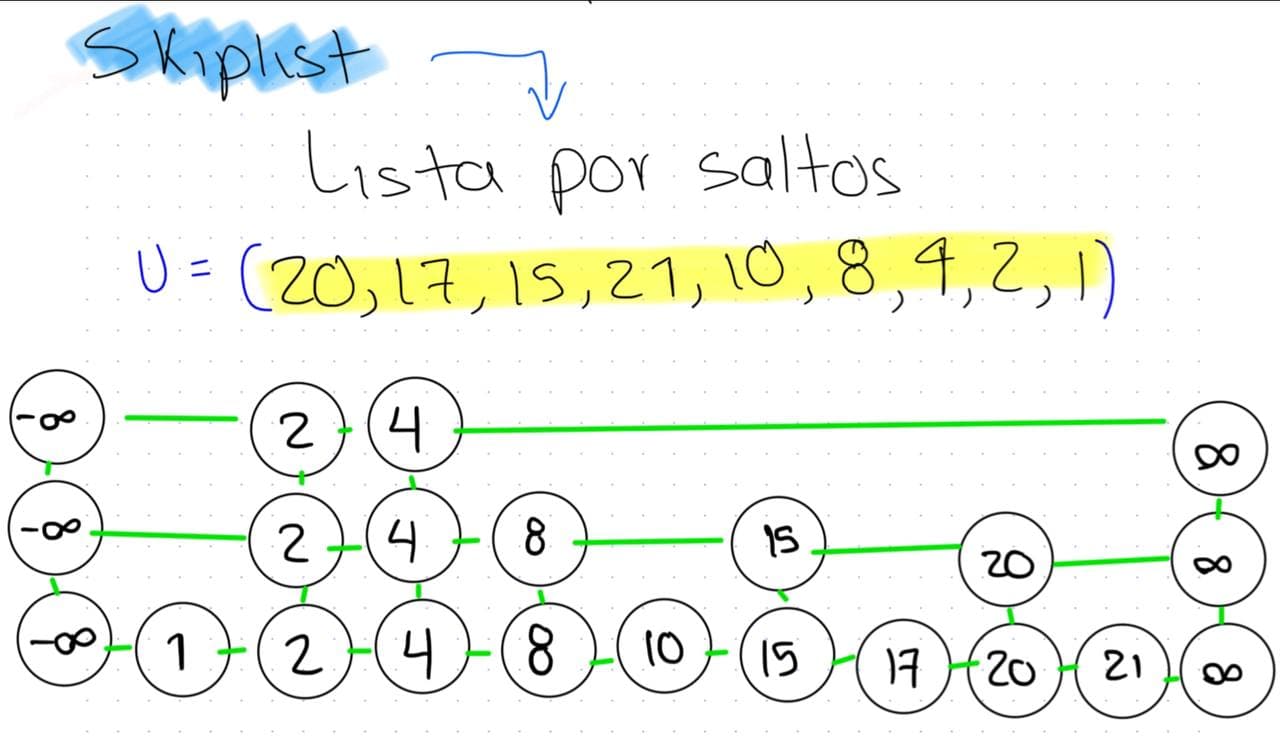 Skiplist
Lista por saltos
U = (20, 17, 15, 21, 10, 8, 4, 2, 1)
-∞ 2 4 ∞
-∞ 2 4 8 15 20 ∞
-∞ 1 2 4 8 10 15 17 20 21 ∞